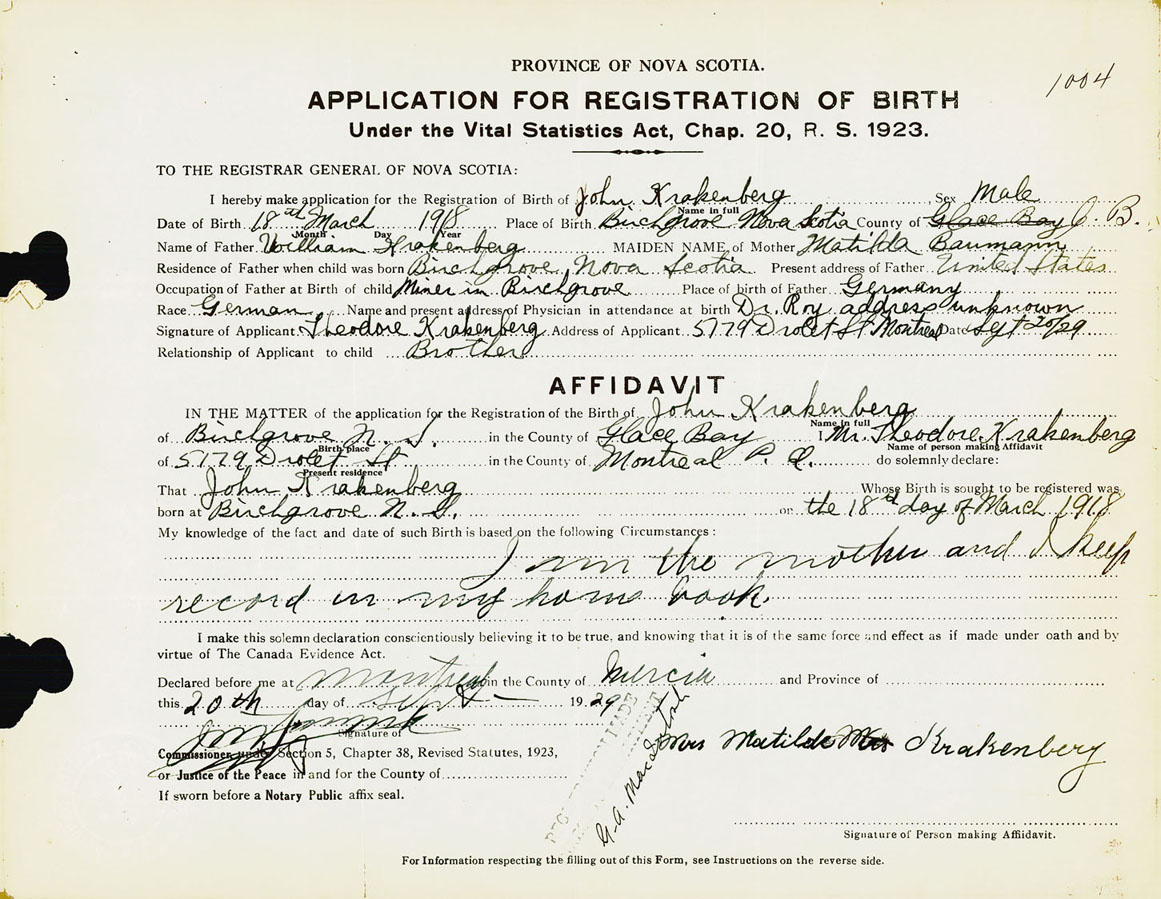 PROVINCE OF NOVA SCOTIA.
1004
APPLICATION FOR REGISTRATION OF BIRTH
Under the Vital Statistics Act, Chap. 20, R. S. 1923.
TO THE REGISTRAR GENERAL OF NOVA SCOTIA:
I hereby make application for the Registration of Birth of John Krakenberg Sex Male
Name in full
Date of Birth 18th March 1918 Place of Birth Birchgrove Nova Scotia County of Glace Bay C. B.
Month Day Year
Name of Father William Krakenberg MAIDEN NAME of Mother Matilda Baumann
Residence of Father when child was born Birchgrove, Nova Scotia Present address of Father United States
Occupation of Father at Birth of child Miner in Birchgrove Place of birth of Father Germany
Race German Name and present address of Physician in attendance at birth Dr. Roy address unknown
Signature of Applicant Theodore Krakenberg Address of Applicant 5779 Drolet St Montreal Date Sept 20/29
Relationship of Applicant to child Brother
AFFIDAVIT
IN THE MATTER of the application for the Registration of the Birth of John Krakenberg
Name in full
of Birchgrove N. S. in the County of Glace Bay I Mr. Theodore Krakenberg
Birth place Name of person making Affidavit
of 5179 Drolet St in the County of Montreal P. Q. do solemnly declare:
Present residence
That John Krakenberg Whose Birth is sought to be registered was
born at Birchgrove N. S. on the 18th day of March 1918
My knowledge of the fact and date of such Birth is based on the following Circumstances:
I am the mother and I keep
record in my home book.
I make this solemn declaration conscientiously believing it to be true, and knowing that it is of the same force and effect as if made under oath and by
virtue of The Canada Evidence Act.
Declared before me at Montreal in the County of and Province of
this 20th day of Sept 1929
Signature of
Commissioner under Section 5, Chapter 38, Revised Statutes, 1923,
Mrs Matilda Mrs Krakenberg
or Justice of the Peace in and for the County of
If sworn before a Notary Public affix seal.
Signature of Person making Affidavit.
For Information respecting the filling out of this Form, see Instructions on the reverse side.